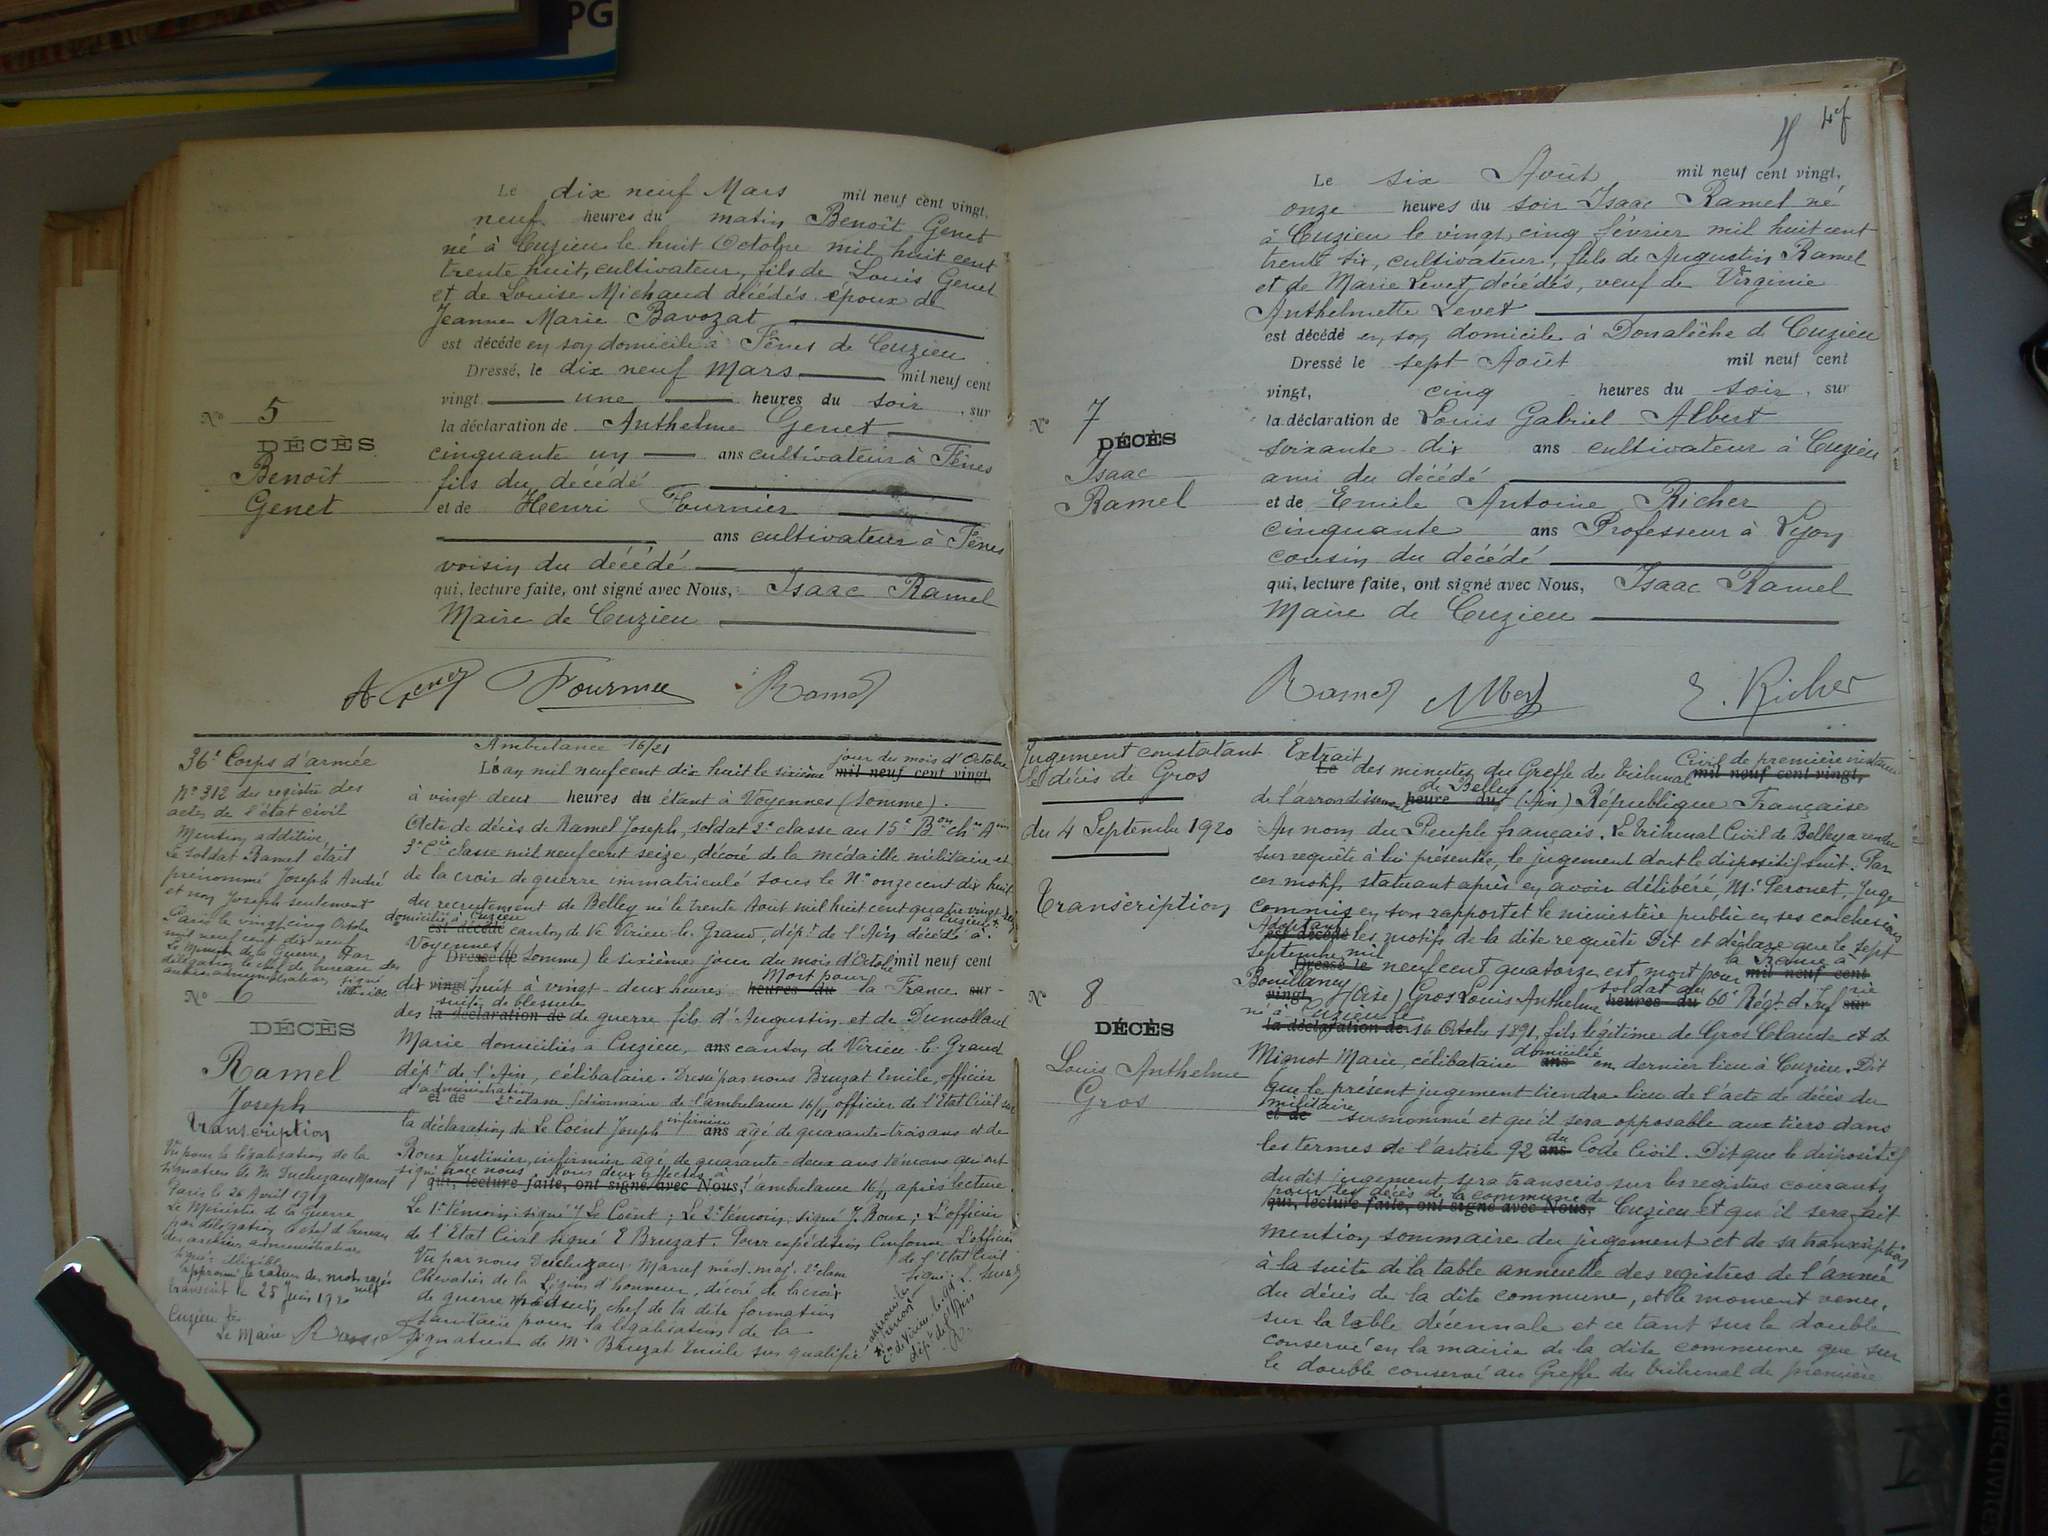 PG
Le dix neuf Mars mil neuf cent vingt,
neuf heures du matin Benoît Genet
né à Cuzieu le huit Octobre mil huit cent
trente huit, cultivateur, fils de Louis Genet
et de Louise Michaud décédés époux de
Jeanne Marie Bavozat
est décédé en son domicile à Fênes de Cuzieu
Dressé, le dix neuf Mars mil neuf cent
vingt une heures du soir, sur
la déclaration de Anthelme Genet
cinquante un ans cultivateur à Fênes
fils du décédé
et de Henri Fournier
ans cultivateur à Fênes
voisin du décédé
qui, lecture faite, ont signé avec Nous, Isaac Ramel
Maire de Cuzieu
N° 5
DÉCÈS
Benoît
Genet
A Genet Fournier Ramel
36e Corps d'armée
N° 312 du registre des
actes de l'état civil
Mention additive,
Le soldat Ramel était
prénommé Joseph André
et non Joseph seulement
Paris le vingt cinq Octobre
mil neuf cent dix neuf
Le Ministre de la Guerre, Par
délégation le chef de bureau des
archives administratives signé
illisible
N° 6
DÉCÈS
Ramel
Joseph
Transcription
Vu pour la légalisation de la
signature de M. Duchezaux Marcel
Paris le 26 Avril 1919
Le Ministre de la Guerre
par délégation le chef de bureau
des archives administratives
signé: illisible
approuvé la rature de mots rayés nuls
transcrit le 25 Juin 1920
Cuzieu
Le Maire Ramel
Ambulance 16/21
L'an mil neuf cent dix huit le sixième jour du mois d'Octobre mil neuf cent vingt,
à vingt deux heures du étant à Voyennes (Somme).
Acte de décès de Ramel Joseph, soldat 2e classe au 15e Bon
3e Cie classe mil neuf cent seize, décoré de la médaille militaire et
de la croix de guerre immatriculé sous le N° onze cent dix huit
du recrutement de Belley né le trente Août mil huit cent quatre vingt
domicilié à Cuzieu est décédé canton de Virieu le Grand, dépt de l'Ain décédé à
Voyennes Dressé le (Somme) le sixième jour du mois d'Octobre mil neuf cent
dix vingt huit à vingt-deux heures heures du Mort pour la France sur
des suites de blessures la déclaration de de guerre fils d'Augustin et de Dumollard
Marie domiciliés à Cuzieu, ans canton de Virieu le Grand
dépt de l'Ain, célibataire. Dressé par nous Bruzat Emile, officier
d'administration et de 2e classe gestionnaire de l'ambulance 16/21 officier de l'Etat Civil sur
la déclaration de Le Coënt Joseph infirmier ans âgé de quarante trois ans et de
Roux Justinier, infirmier âgé de quarante-deux ans témoins qui ont
signé avec nous tous deux affectés à qui, lecture faite, ont signé avec Nous, l'ambulance 16/21 après lecture.
Le 1er témoin: signé J Le Coënt; Le 2e témoin, signé J. Roux; L'officier
de l'Etat Civil signé E Bruzat. Pour expédition conforme L'officier
de l'Etat Civil
Vu par nous Duchezaux Marcel méd. maj. 2e classe
Chevalier de la Légion d'honneur, décoré de la croix
de guerre médecin chef de la dite formation
sanitaire pour la légalisation de la
signature de Mr Bruzat Emile sus qualifié
4
Le six Août mil neuf cent vingt,
onze heures du soir Isaac Ramel né
à Cuzieu le vingt cinq Février mil huit cent
trente six, cultivateur, fils de Augustin Ramel
et de Marie Levet, décédés, veuf de Virginie
Anthelmette Levet
est décédé en son domicile à Donalèche de Cuzieu
Dressé le sept Août mil neuf cent
vingt, cinq heures du soir, sur
la déclaration de Louis Gabriel Albert
soixante dix ans cultivateur à Cuzieu
ami du décédé
et de Emile Antoine Richer
cinquante ans Professeur à Lyon
cousin du décédé
qui, lecture faite, ont signé avec Nous, Isaac Ramel
Maire de Cuzieu
N° 7
DÉCÈS
Isaac
Ramel
Ramel Albert E. Richer
Jugement constatant
le décès de Gros
du 4 Septembre 1920
Transcription
N° 8
DÉCÈS
Louis Anthelme
Gros
Extrait Le des minutes du Greffe du Tribunal Civil de première instance mil neuf cent vingt,
de l'arrondissement de Belley heure du (Ain) République Française
Au nom du Peuple français. Le tribunal Civil de Belley a rendu
sur requête à lui présentée, le jugement dont le dispositif suit. Par
ces motifs statuant après en avoir délibéré, Mr Peronet, Juge
commis en son rapport et le ministère public en ses conclusions
Adoptant est décédé les motifs de la dite requête Dit et déclare que le sept
Septembre mil Dressé le neuf cent quatorze, est mort pour la France à mil neuf cent
Bouillancy vingt, (Oise) Gros Louis Anthelme soldat du heures du 60e Régt d'Infrie sur
né à Cuzieu le la déclaration de 16 Octobre 1891, fils légitime de Gros Claude et de
Mignot Marie, célibataire domicilié ans en dernier lieu à Cuzieu. Dit
que le présent jugement tiendra lieu de l'acte de décès du
militaire et de surnommé et qu'il sera opposable aux tiers dans
les termes de l'article 92 du ans Code Civil. Dit que le dispositif
du dit jugement sera transcris sur les registres courants
pour les décès de la commune de qui, lecture faite, ont signé avec Nous, Cuzieu et qu'il sera fait
mention sommaire du jugement et de sa transcription
à la suite de la table annuelle des registres de l'année
du décès de la dite commune, et le moment venu,
sur la table décennale et ce tant sur le double
conservé en la mairie de la dite commune que sur
le double conservé au Greffe du tribunal de première